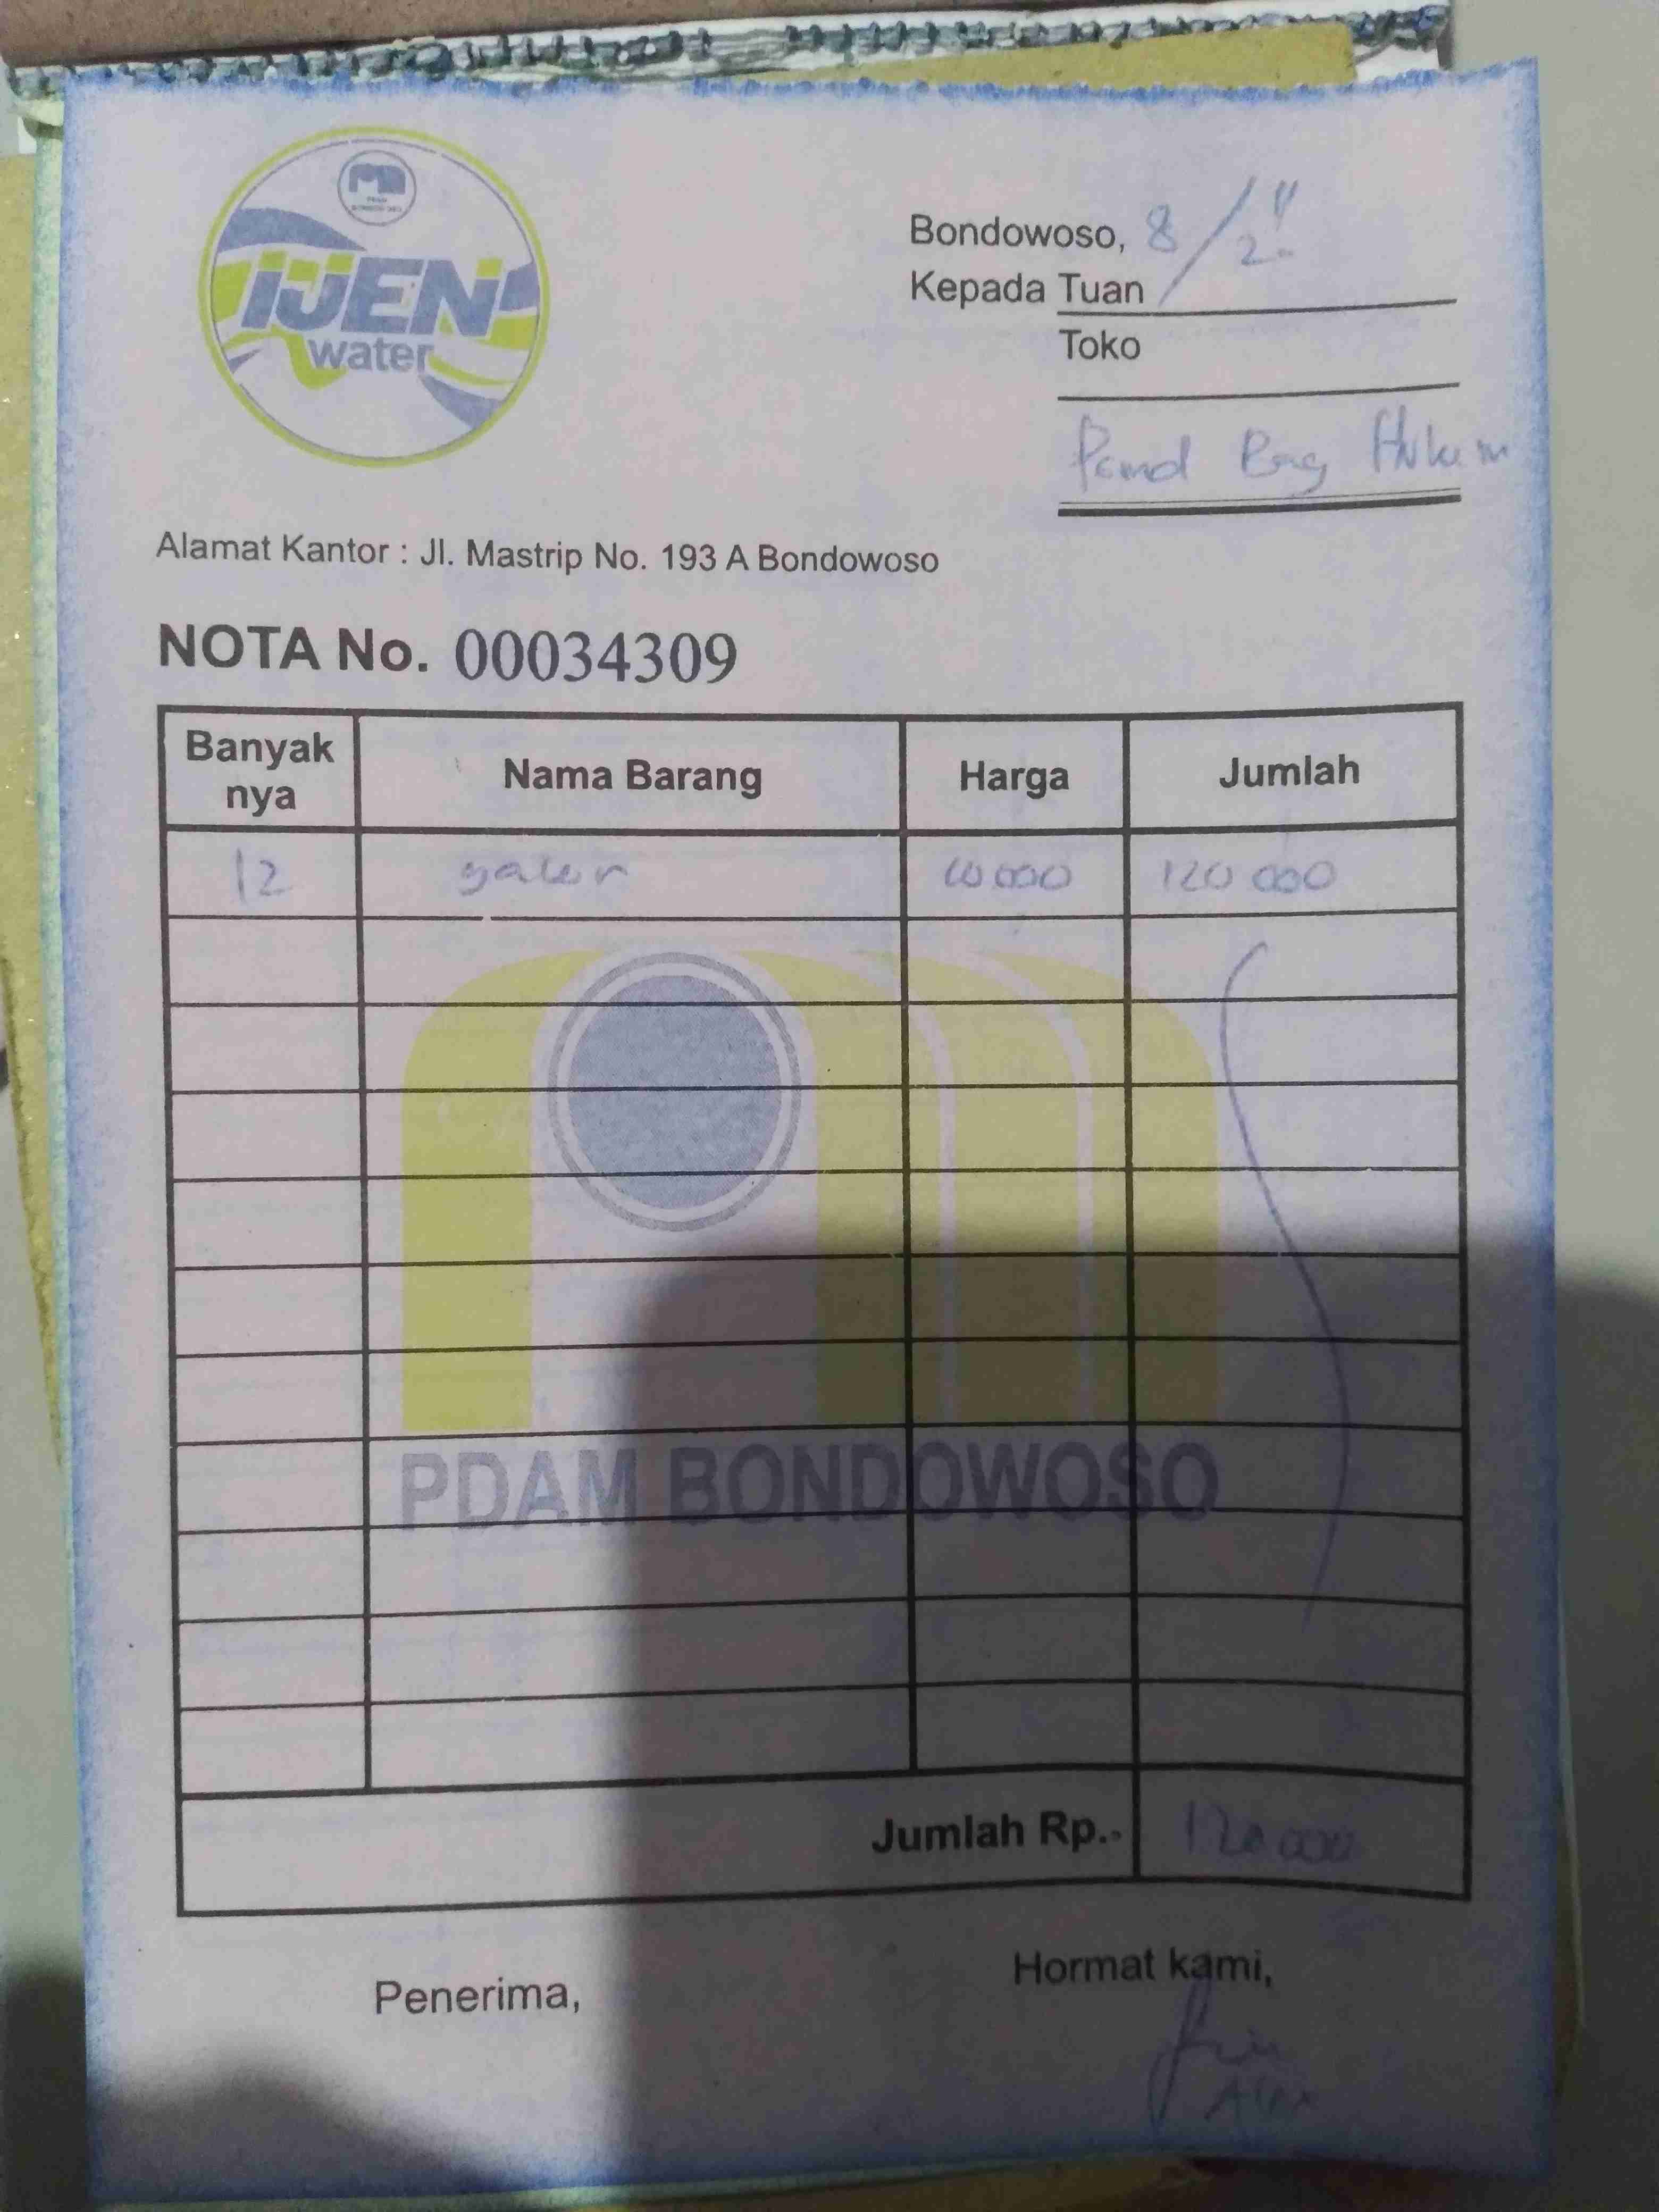 IJEN
water
Bondowoso, 8/2
Kepada Tuan
Toko
Pemd Bag Hukum
Alamat Kantor : Jl. Mastrip No. 193 A Bondowoso
NOTA No. 00034309
Banyak nya Nama Barang Harga Jumlah
12 galon 10 000 120 000
PDAM BONDOWOSO
Jumlah Rp.- 120 000
Penerima,
Hormat kami,